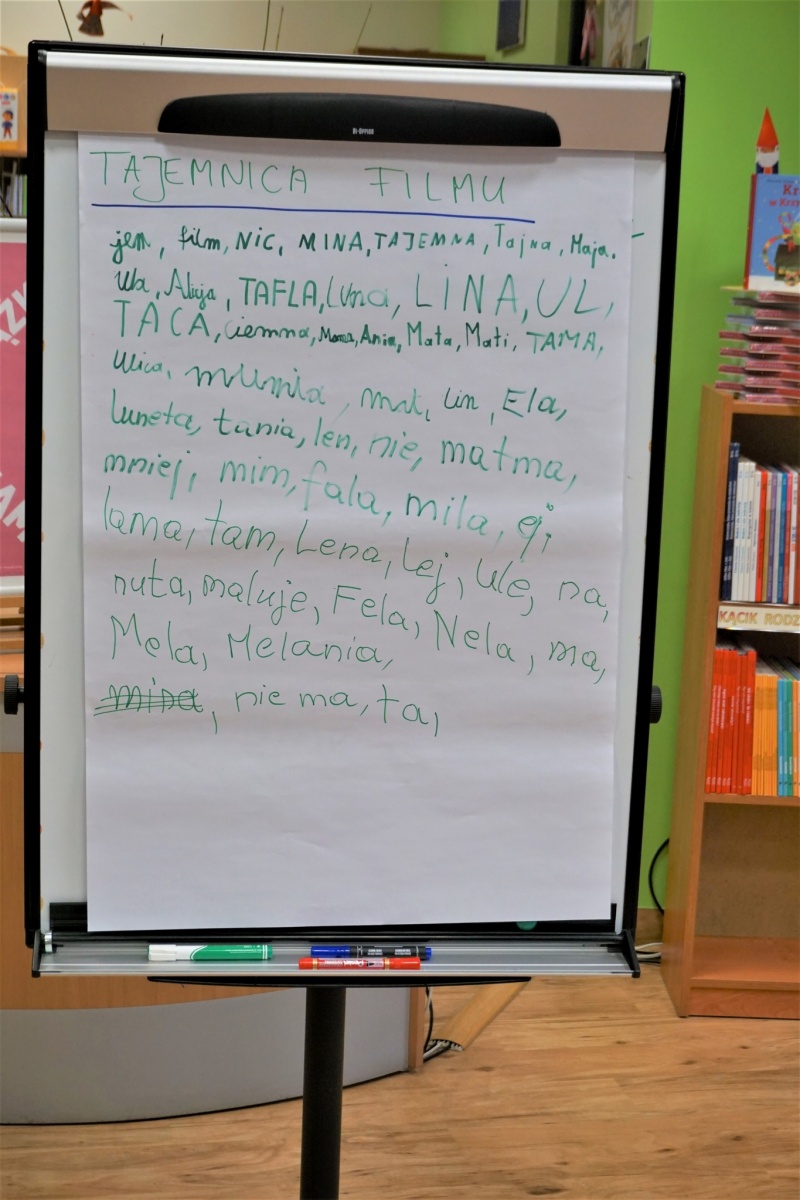 BI-OFFICE
TAJEMNICA FILMU
jem, film, NIC, MINA, TAJEMNA, Tajna, Maja.
Ula, Alicja, TAFLA, Luna, LINA, UL,
TACA, ciemna, Mama, Ania, Mata, Mati, TAMA,
Ulica, mumia, mat, lin, Ela,
luneta, tania, len, nie, matma,
mniej, mim, fala, mila,
lama, tam, Lena, lej, Ule, na,
nuta, maluje, Fela, Nela, ma,
Mela, Melania,
mina, nie ma, ta,
KĄCIK RODZ